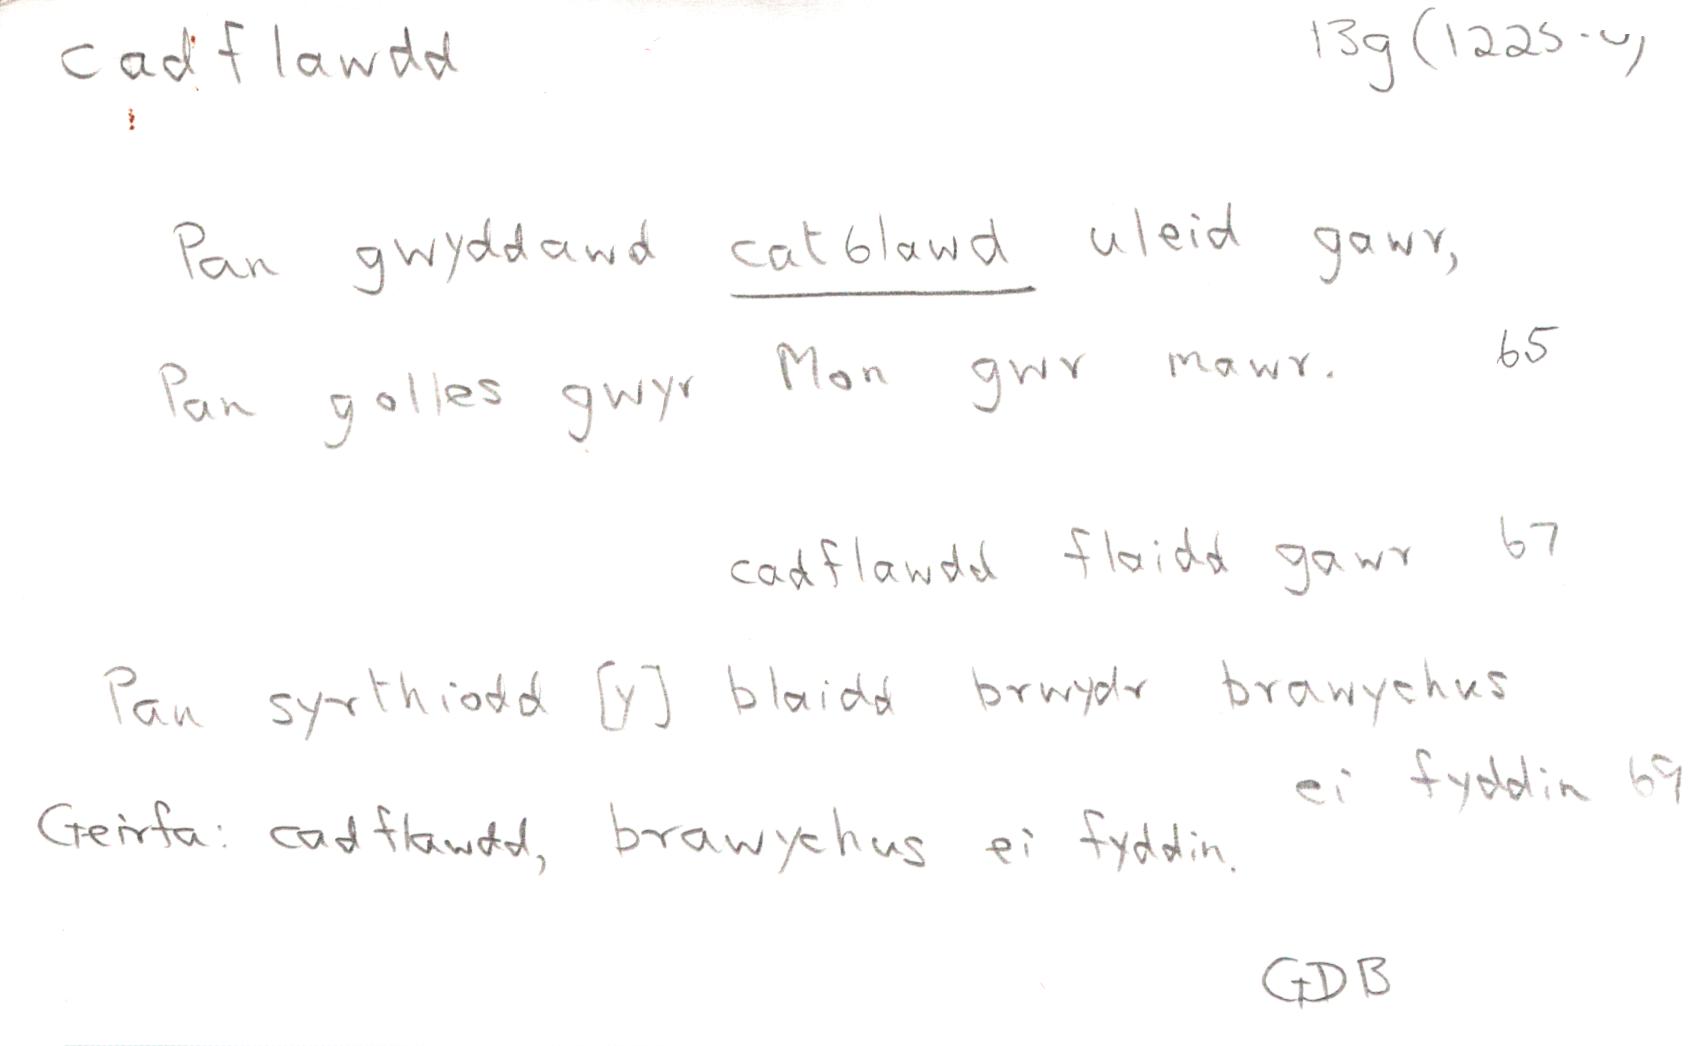 cadflawdd 13g (1225-
Pan gwyddawd catblawd uleid gawr,
Pan golles gwyr Mon gwr mawr. 65
cadflawdd flaidd gawr 67
Pan syrthiodd [y] blaidd brwydr brawychus
ei fyddin 69
Geirfa: cadflawdd, brawychus ei fyddin.
GDB